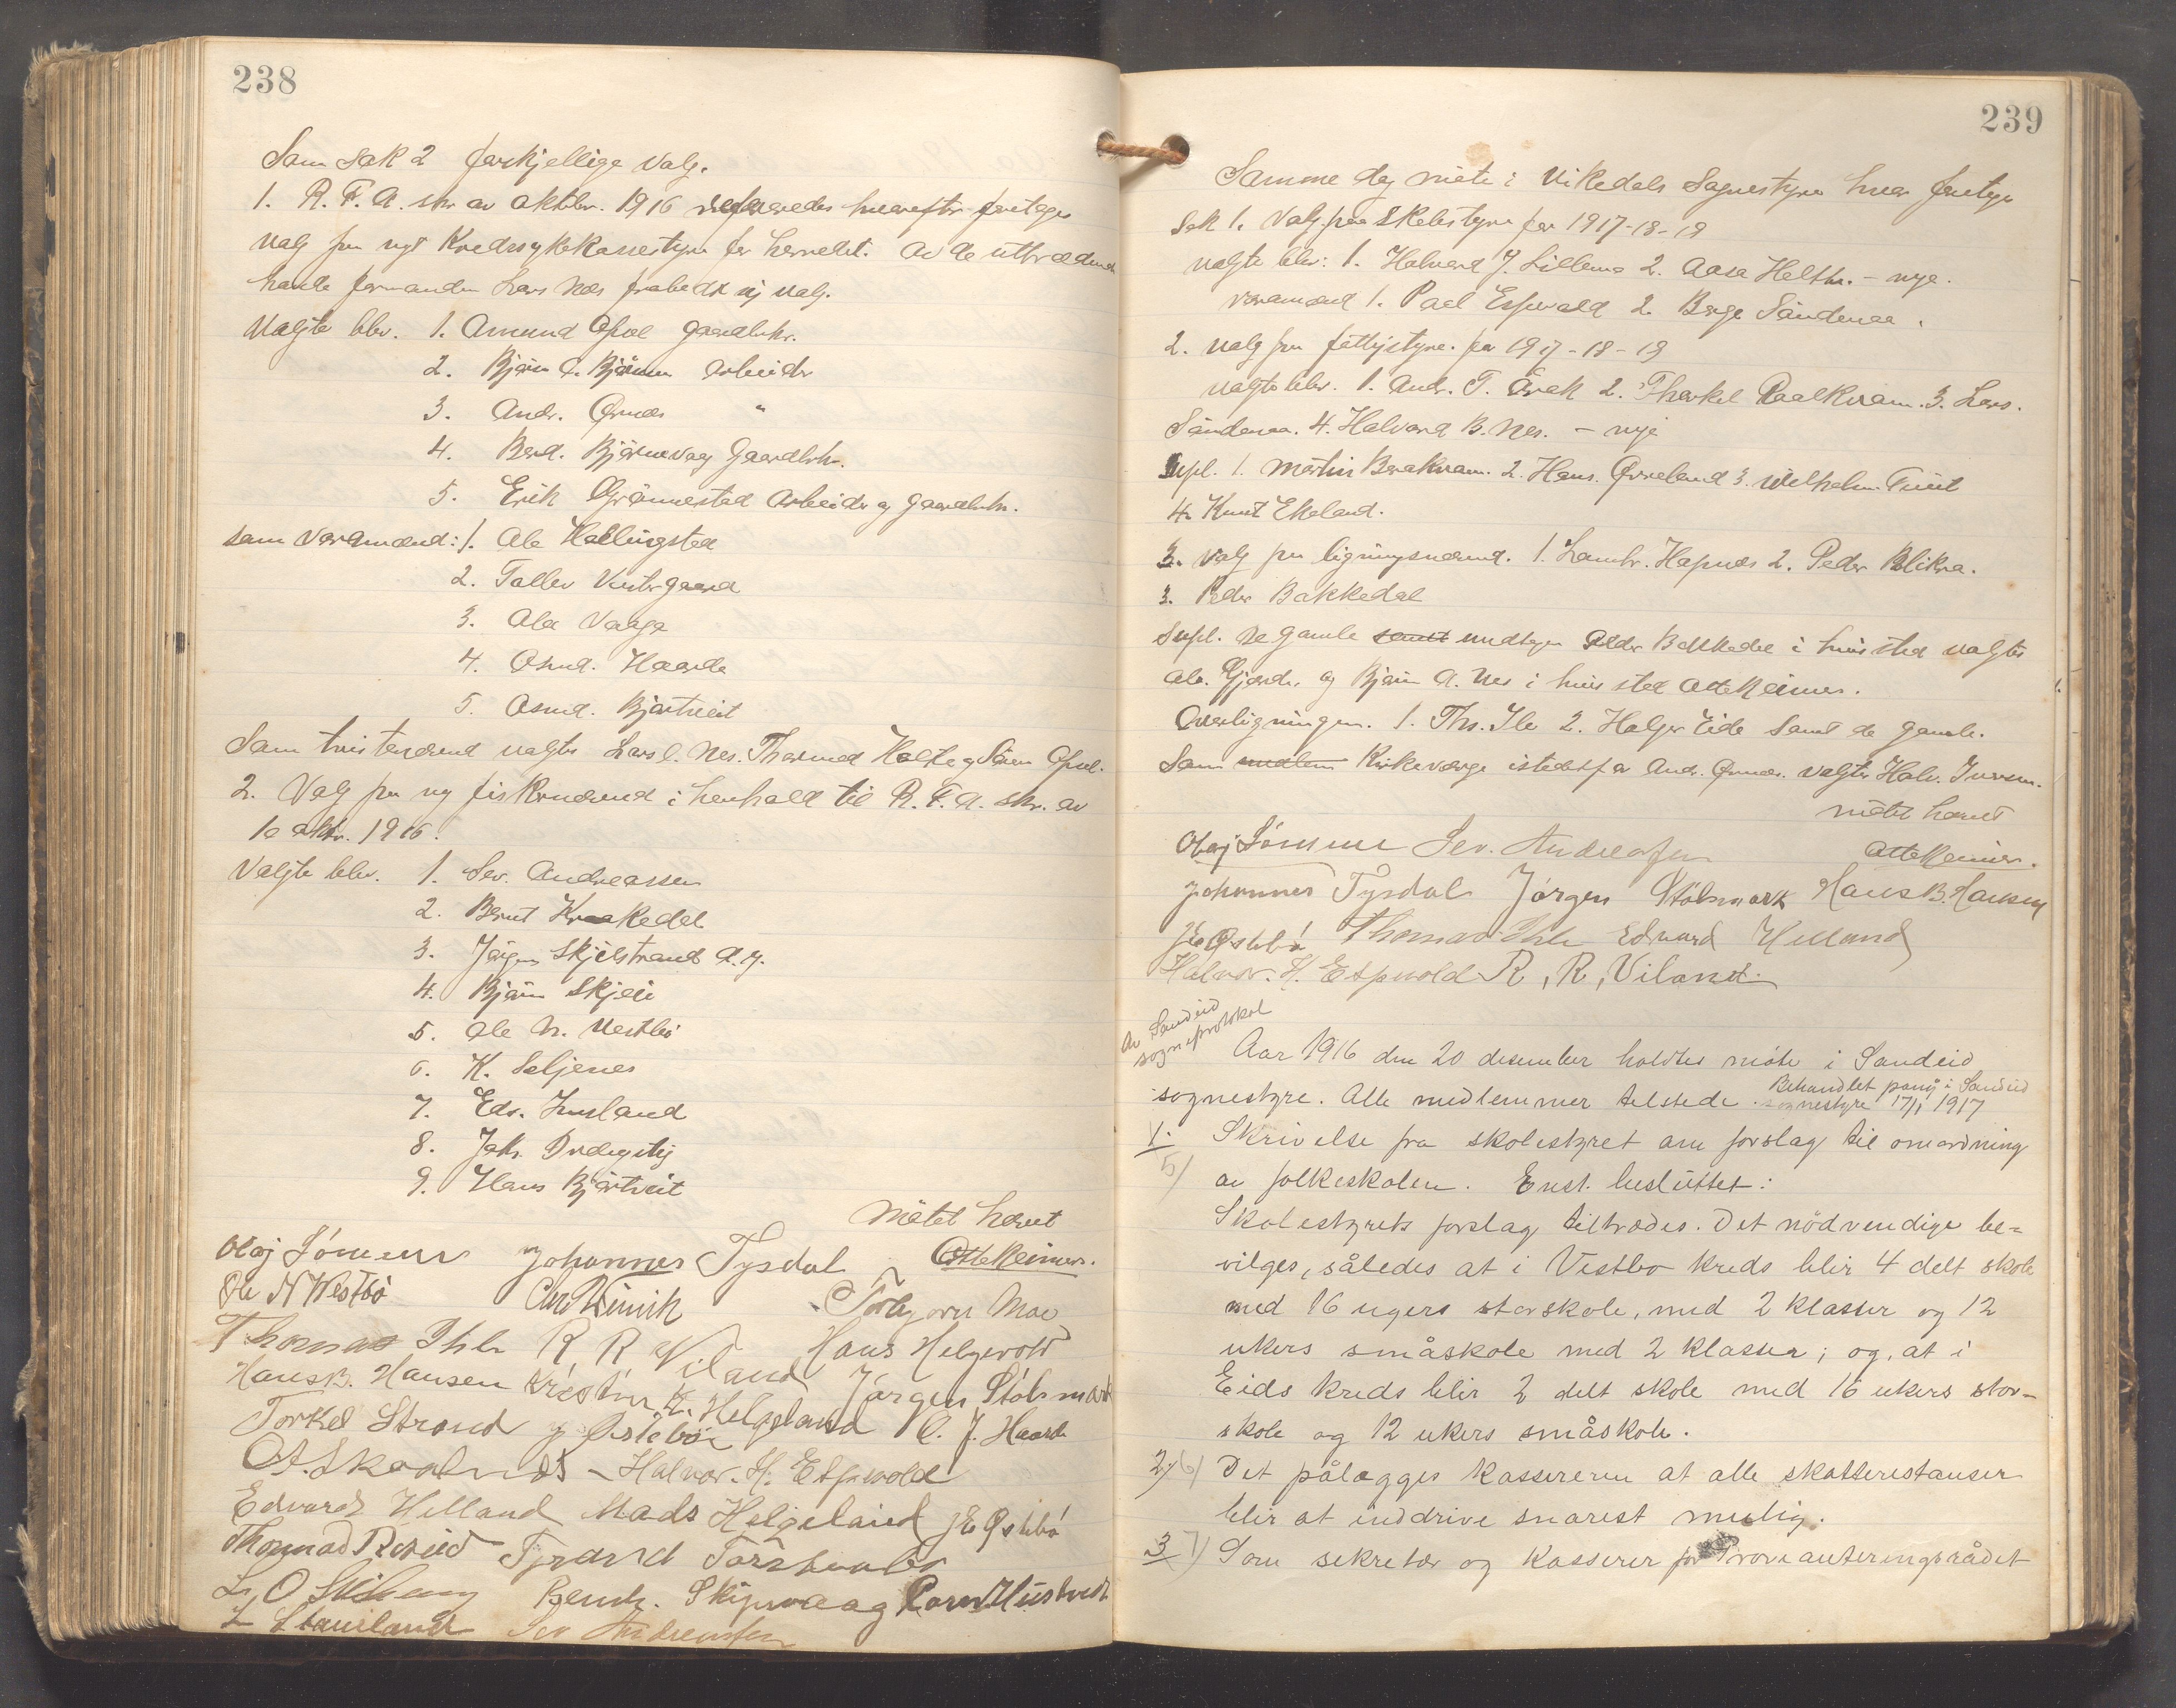 238
Som sak 2 forskjellige valg.
1. R. F. A. skr av oktbr. 1916 refereredes hvorefter foretoges
valg paa nyt Kredssykekassestyre for herredet. Av de uttrædende
havde formanden Lars Nes frabedt sig valg.
Valgte blev. 1. Amund Opsal gaardbrkr.
2. Bjørn A. arbeider
3. Andr. Ørnes "
4. Bjørnevaag Gaardbrk.
5. Erik Grønnestad Arbeider og gaardbrk.
som varamænd: 1. Ole Hallingstad
2. Tollev Vestergaard
3. Ola Vaaga
4. Osmd. Haarda
5. Osmd. Bjørtveit
Som tvistenævnd valgte Lars l. Nes. Thormod og Søren Opsal.
2. Valg paa ny fiskernævnd i henhold til R. F. A. skr. av
10 oktr. 1916.
Valgte blev. 1. Sev. Andreassen
2. Bernt Krakedal
3. Jørgen Skjelstrand d. y.
4. Bjørn Skjeie
5. Ole N. Vestbø
6. K. Seljenes
7. Edv. Imsland
8. Joh.
9. Hans Bjørtveit
Møtet hævet
Olaj Sømme Johannes Tysdal Otto Reimers.
Ole N Westbø Chr Winnik Torbjørn Moe
Thomas Ihle R R Viland Hans Helgevold
Hans B. Hansen Kristen K. Helgeland Jørgen Stølsmark
Torkel Strand J Østebø O. J. Haarde
O A. Skaalnes Halvor. H. Espevold
Edvard Helland Mads Helgeland J E Østebø
Thormod Røseid Tjerand
L. O. Bendz. Skipevaag Hustvedt
L Stauland Sev Andreassen
239
Samme dag møte i Vikedals Sognestyre hvor foretoges
Sak 1. Valg paa Skolestyre for 1917-18-19
valgte blev: 1. Halvard J. Lillemo 2. Aasa - nye.
varamænd 1. Paal Espevold 2. Børge Søndenaa.
2. valg paa fattigstyre for 1917-18-19
valgte blev. 1. Andr. T. 2. Thorkel Raalkvam. 3. Lars.
Søndenaa. 4. Halvard B. Nes. - nye
Supl. 1. Martin 2. Hans. Ørneland 3. Wilhelm Tveit
4. Knut Ekeland.
3. valg paa ligningsnævnd. 1. Lambr. Hapnes 2. Peder Blikra.
3. Peder Bakkedal
Supl. de gamle samt undtagen Peder Bakkedal i hvis sted valgtes
Ole. og Bjørn A. Nes i hvis sted Otto Reimers.
Overligningen. 1. Ths. Ile 2. Holger Eide samt de gamle.
Som medlem Kirkeverge istedetfor Andr. Ørnes. valgtes Halv. Iversen.
møtet hævet
Olaj Sømme Sev. Andreassen Otto Reimers.
Johannes Tysdal Jørgen Stølsmark Hans B. Hansen
J E Østebø Thomas Ihle Edvard Helland
Halvor. H. Espevold R, R, Viland.
Av Sandeid
sogneprotokol
Aar 1916 den 20 desember holdtes møte i Sandeid
sognestyre. Alle medlemmer tilstede. Behandlet paany i Sandeid
sognestyre 17/1 1917
1. Skrivelse fra skolestyret om forslag til omordning
5) av folkeskolen. Enst. besluttet:
Skolestyrets forslag tiltrædes. Det nødvendige be=
vilges, således at i Vestbø kreds blir 4 delt skole
med 16 ugers storskole, med 2 klasser og 12
ukers småskole med 2 klasser; og, at i
Eids kreds blir 2 delt skole med 16 ukers stor-
skole og 12 ukers småskole.
2) 6) Det pålægges kassereren at alle skatterestanser
blir at inddrive snarest mulig.
3 7) Som sekretær og kasserer for Provianteringsrådet